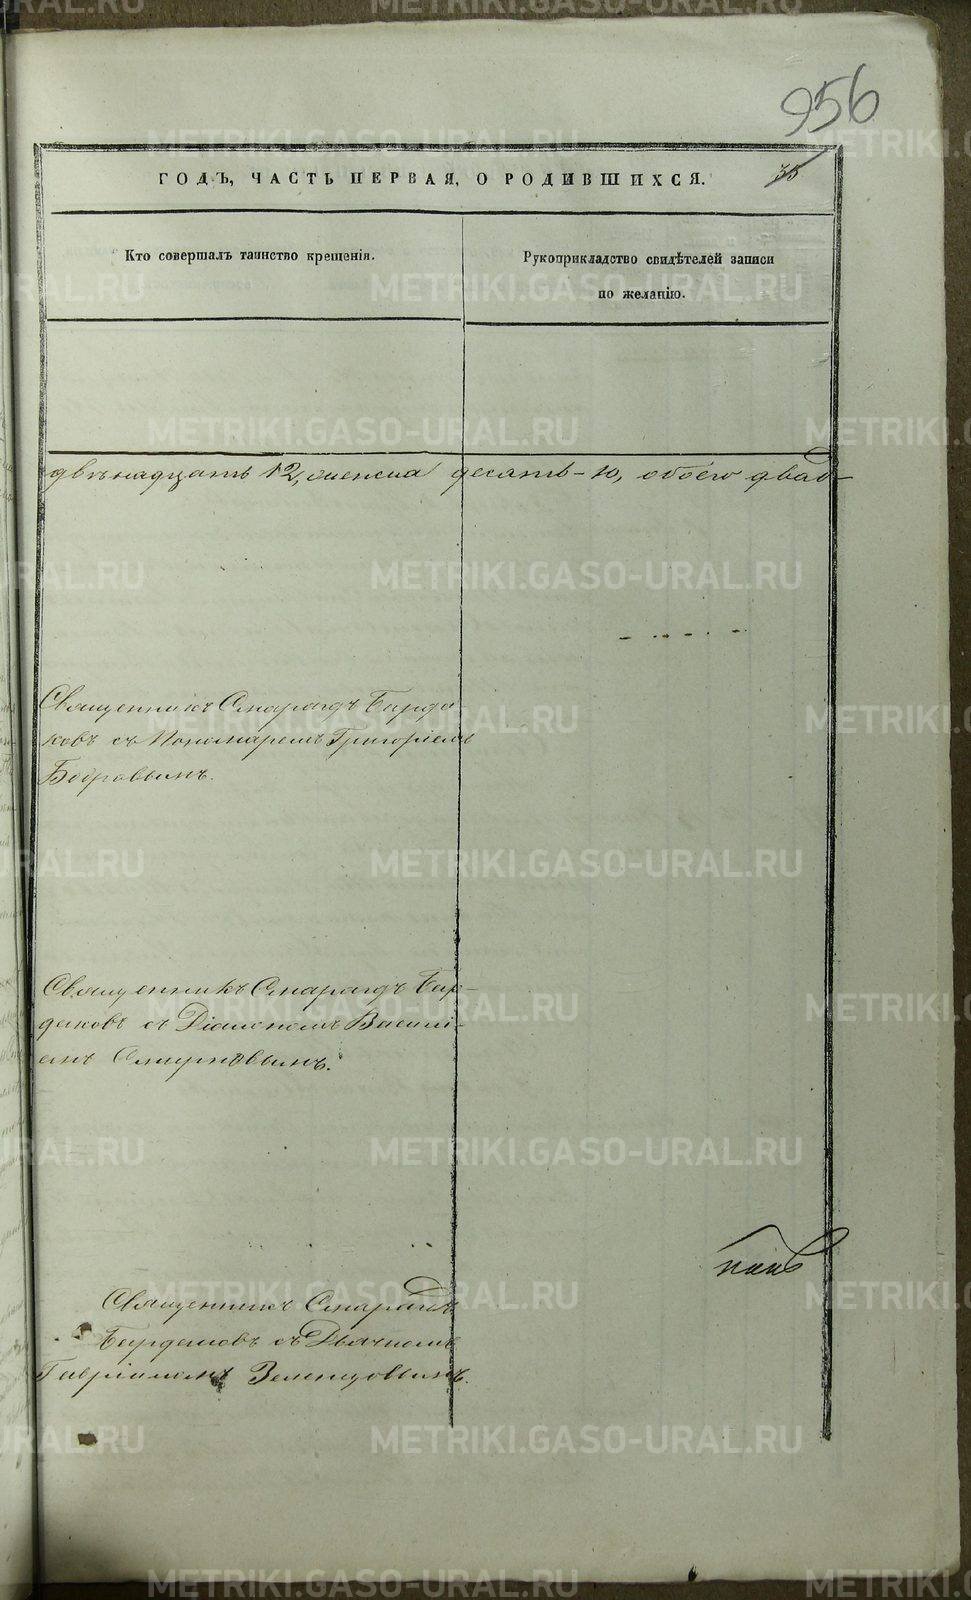 956
35
ГОДЪ, ЧАСТЬ ПЕРВАЯ, О РОДИВШИХСЯ.
Кто совершалъ таинство крещенія.
Рукоприкладство свидѣтелей записи
по желанію.
двѣнадцать 12, женска десять-10, обоего двад-
Священникъ Смарагдъ Бирда-
ковъ съ Пономаремъ Григоріемъ
Бобровымъ.
Священникъ Смарагдъ Бир-
даковъ съ Діакономъ Василі-
емъ Смирновымъ.
Священникъ Смарагдъ
Бирдаковъ съ Дьячкомъ
Гавріиломъ Зеленцовымъ.
METRIKI.GASO-URAL.RU